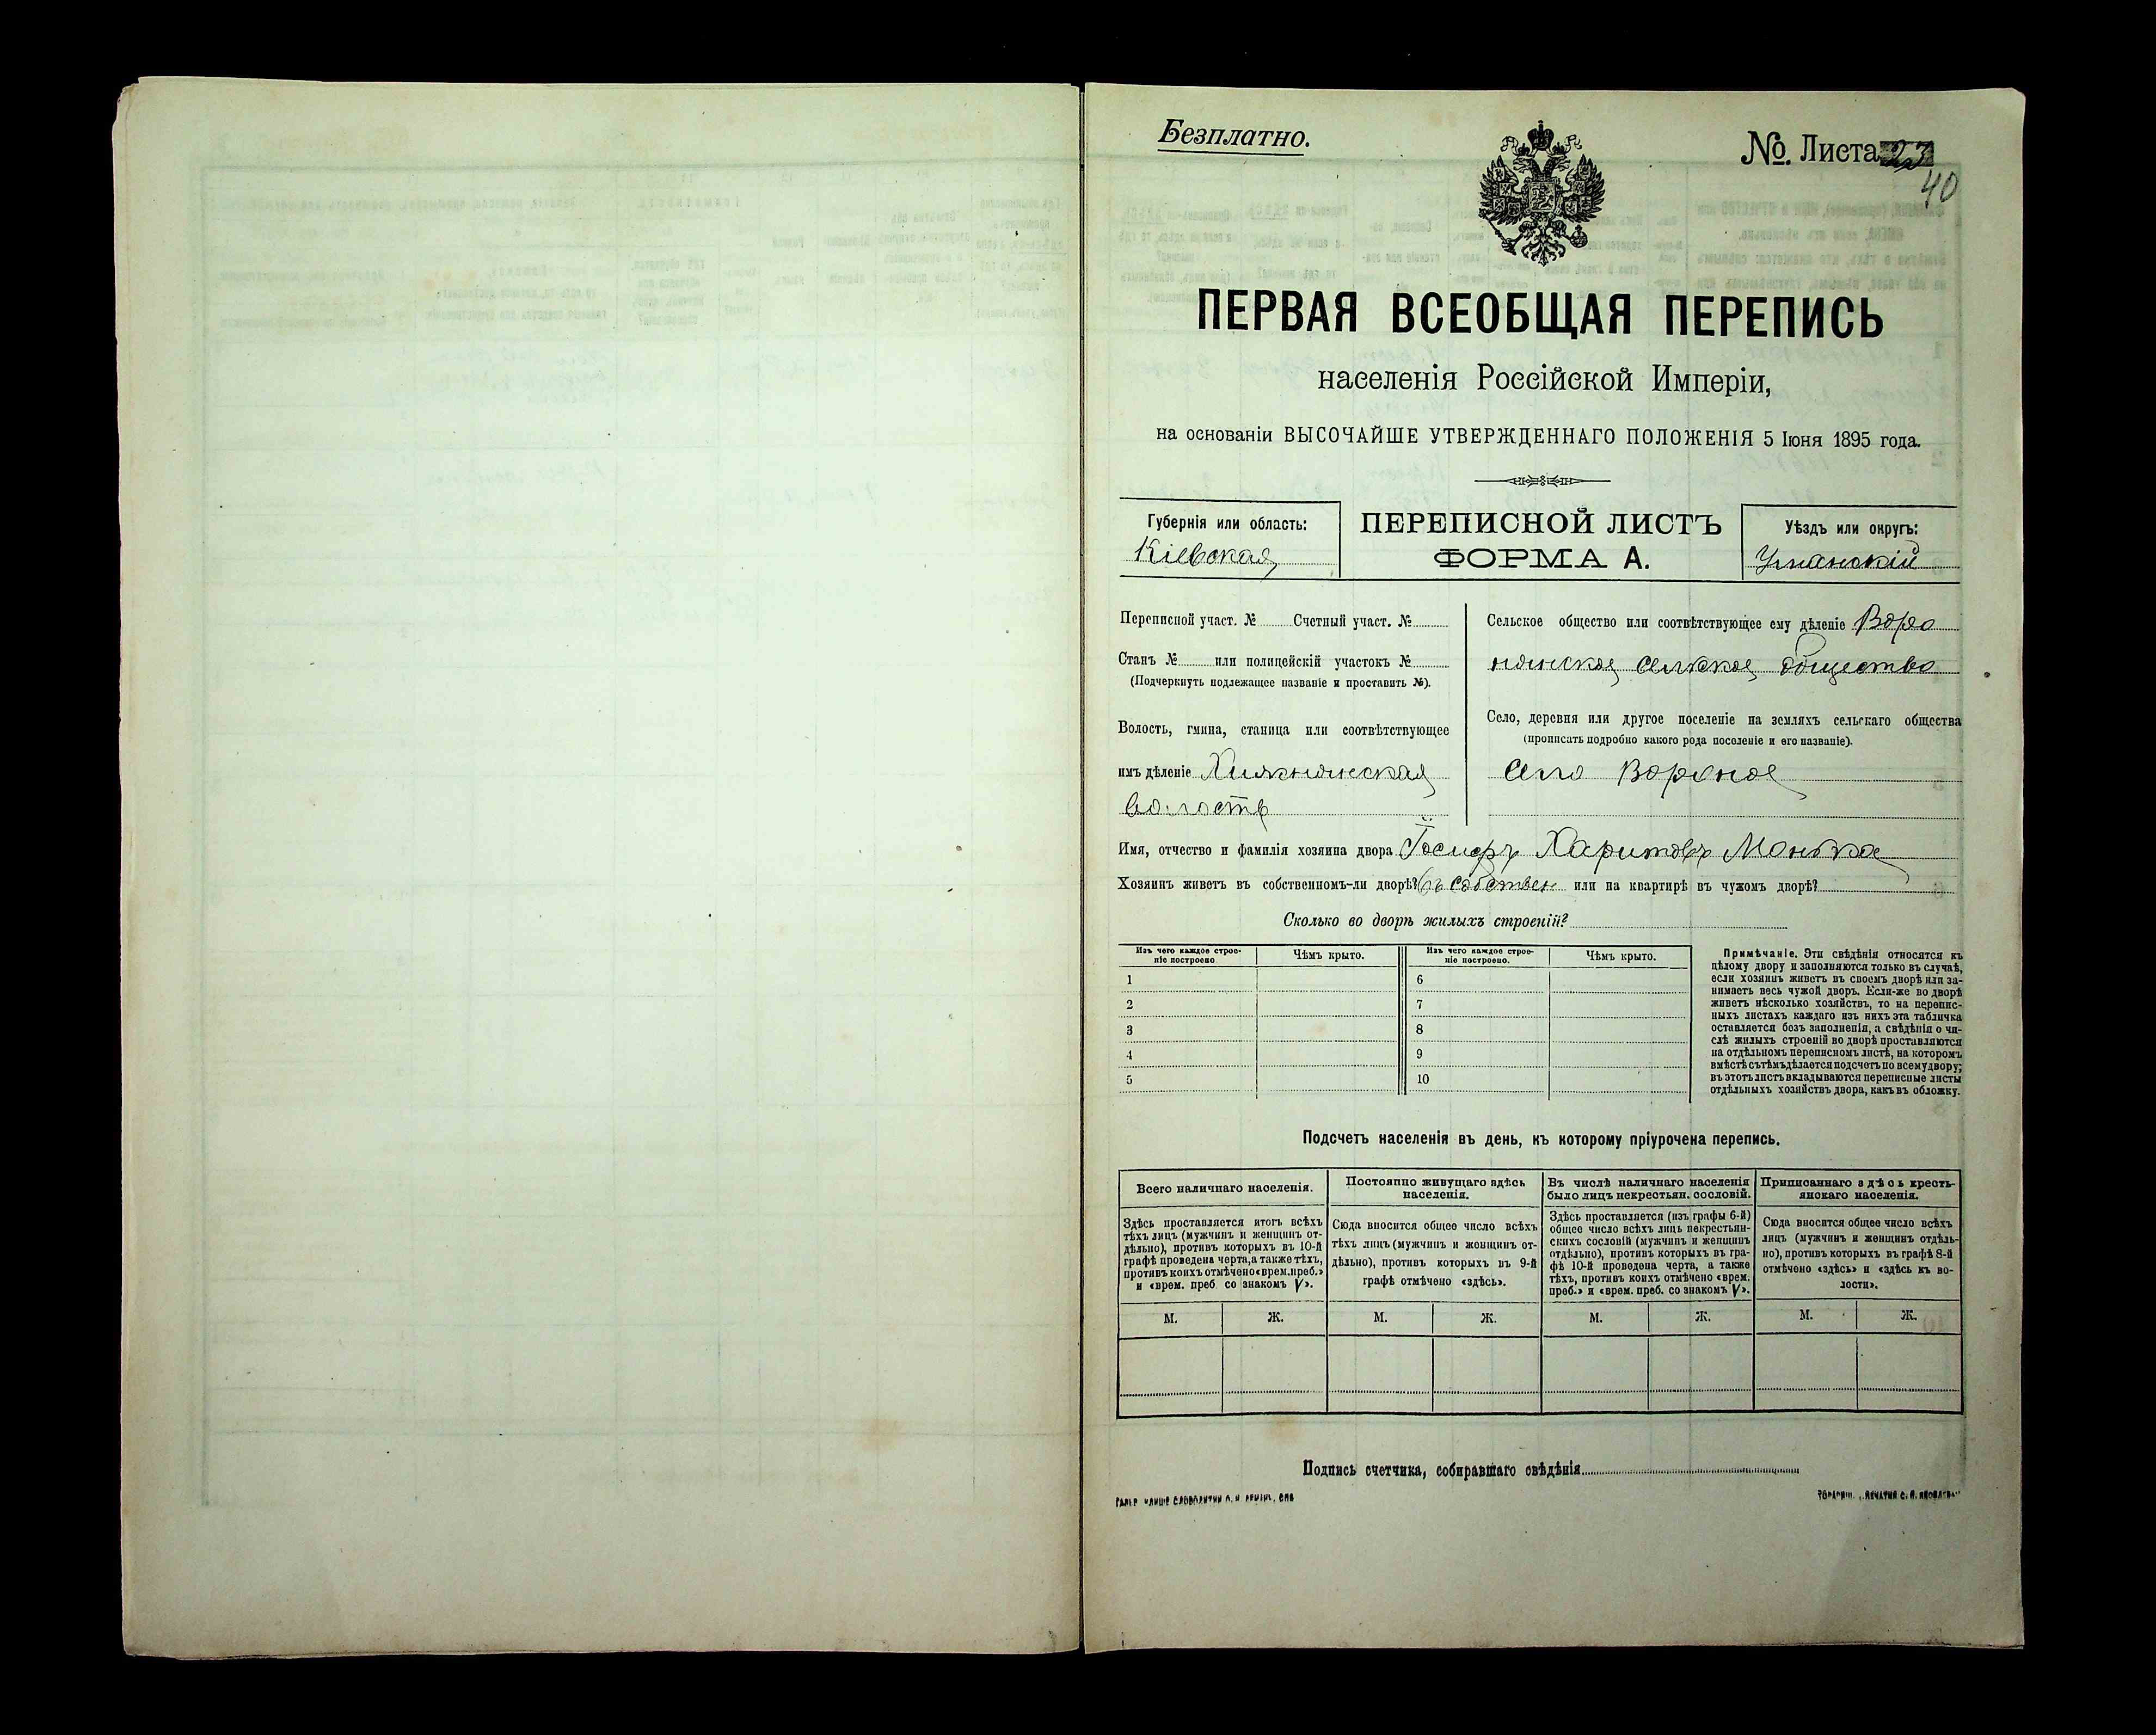 Безплатно.
№ Листа 23
40
ПЕРВАЯ ВСЕОБЩАЯ ПЕРЕПИСЬ
населенія Россійской Имперіи,
на основаніи ВЫСОЧАЙШЕ УТВЕРЖДЕННАГО ПОЛОЖЕНІЯ 5 Іюня 1895 года.
Губернія или область:
Кіевская
ПЕРЕПИСНОЙ ЛИСТЪ
ФОРМА А.
Уѣздъ или округъ:
Уманскій
Переписной участ. № Счетный участ. №
Станъ № или полицейскій участокъ №
(Подчеркнуть подлежащее названіе и проставить №).
Волость, гмина, станица или соотвѣтствующее
имъ дѣленіе
волость
Сельское общество или соотвѣтствующее ему дѣленіе Воро
нянское сельское общество
Село, деревня или другое поселеніе на земляхъ сельскаго общества
(прописать подробно какого рода поселеніе и его названіе).
Село Вороное
Имя, отчество и фамилія хозяина двора Іосифъ Харитовъ Монька
Хозяинъ живетъ въ собственномъ-ли дворѣ? въ собствен или на квартирѣ въ чужомъ дворѣ?
Сколько во дворѣ жилыхъ строеній?
Изъ чего каждое строе-
ніе построено
Чѣмъ крыто.
Изъ чего каждое строе-
ніе построено.
Чѣмъ крыто.
1 6
2 7
3 8
4 9
5 10
Примѣчаніе. Эти свѣдѣнія относятся къ
цѣлому двору и заполняются только въ случаѣ,
если хозяинъ живетъ въ своемъ дворѣ или за-
нимаетъ весь чужой дворъ. Если-же во дворѣ
живетъ нѣсколько хозяйствъ, то на перепис-
ныхъ листахъ каждаго изъ нихъ эта табличка
оставляется безъ заполненія, а свѣдѣнія о чи-
слѣ жилыхъ строеній во дворѣ проставляются
на отдѣльномъ переписномъ листѣ, на которомъ
вмѣстѣ съ тѣмъ дѣлается подсчетъ по всему двору;
въ этотъ листъ вкладываются переписные листы
отдѣльныхъ хозяйствъ двора, какъ въ обложку.
Подсчетъ населенія въ день, къ которому пріурочена перепись.
Всего наличнаго населенія.
Здѣсь проставляется итогъ всѣхъ
тѣхъ лицъ (мужчинъ и женщинъ от-
дѣльно), противъ которыхъ въ 10-й
графѣ проведена черта, а также тѣхъ,
противъ коихъ отмѣчено «врем. преб.»
и «врем. преб со знакомъ V».
Постоянно живущаго здѣсь
населенія.
Сюда вносится общее число всѣхъ
тѣхъ лицъ (мужчинъ и женщинъ от-
дѣльно), противъ которыхъ въ 9-й
графѣ отмѣчено «здѣсь».
Въ числѣ наличнаго населенія
было лицъ некрестьян. сословій.
Здѣсь проставляется (изъ графы 6-й)
общее число всѣхъ лицъ некрестьян-
скихъ сословій (мужчинъ и женщинъ
отдѣльно), противъ которыхъ въ гра-
фѣ 10-й проведена черта, а также
тѣхъ, противъ коихъ отмѣчено «врем.
преб.» и «врем. преб. со знакомъ V».
Приписаннаго здѣсь кресть-
янскаго населенія.
Сюда вносится общее число всѣхъ
лицъ (мужчинъ и женщинъ отдѣль-
но), противъ которыхъ въ графѣ 8-й
отмѣчено «здѣсь» и «здѣсь къ во-
лости».
М. Ж. М. Ж. М. Ж. М. Ж.
Подпись счетчика, собиравшаго свѣдѣнія